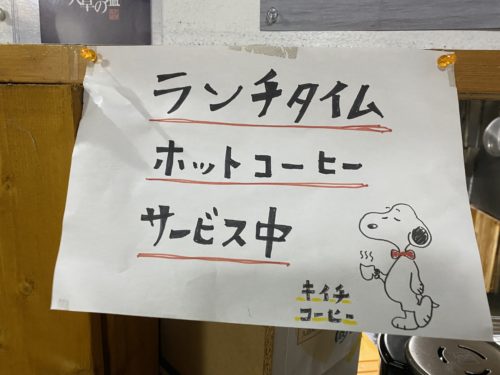 ランチタイム
ホットコーヒー
サービス中
キイチ
コーヒー